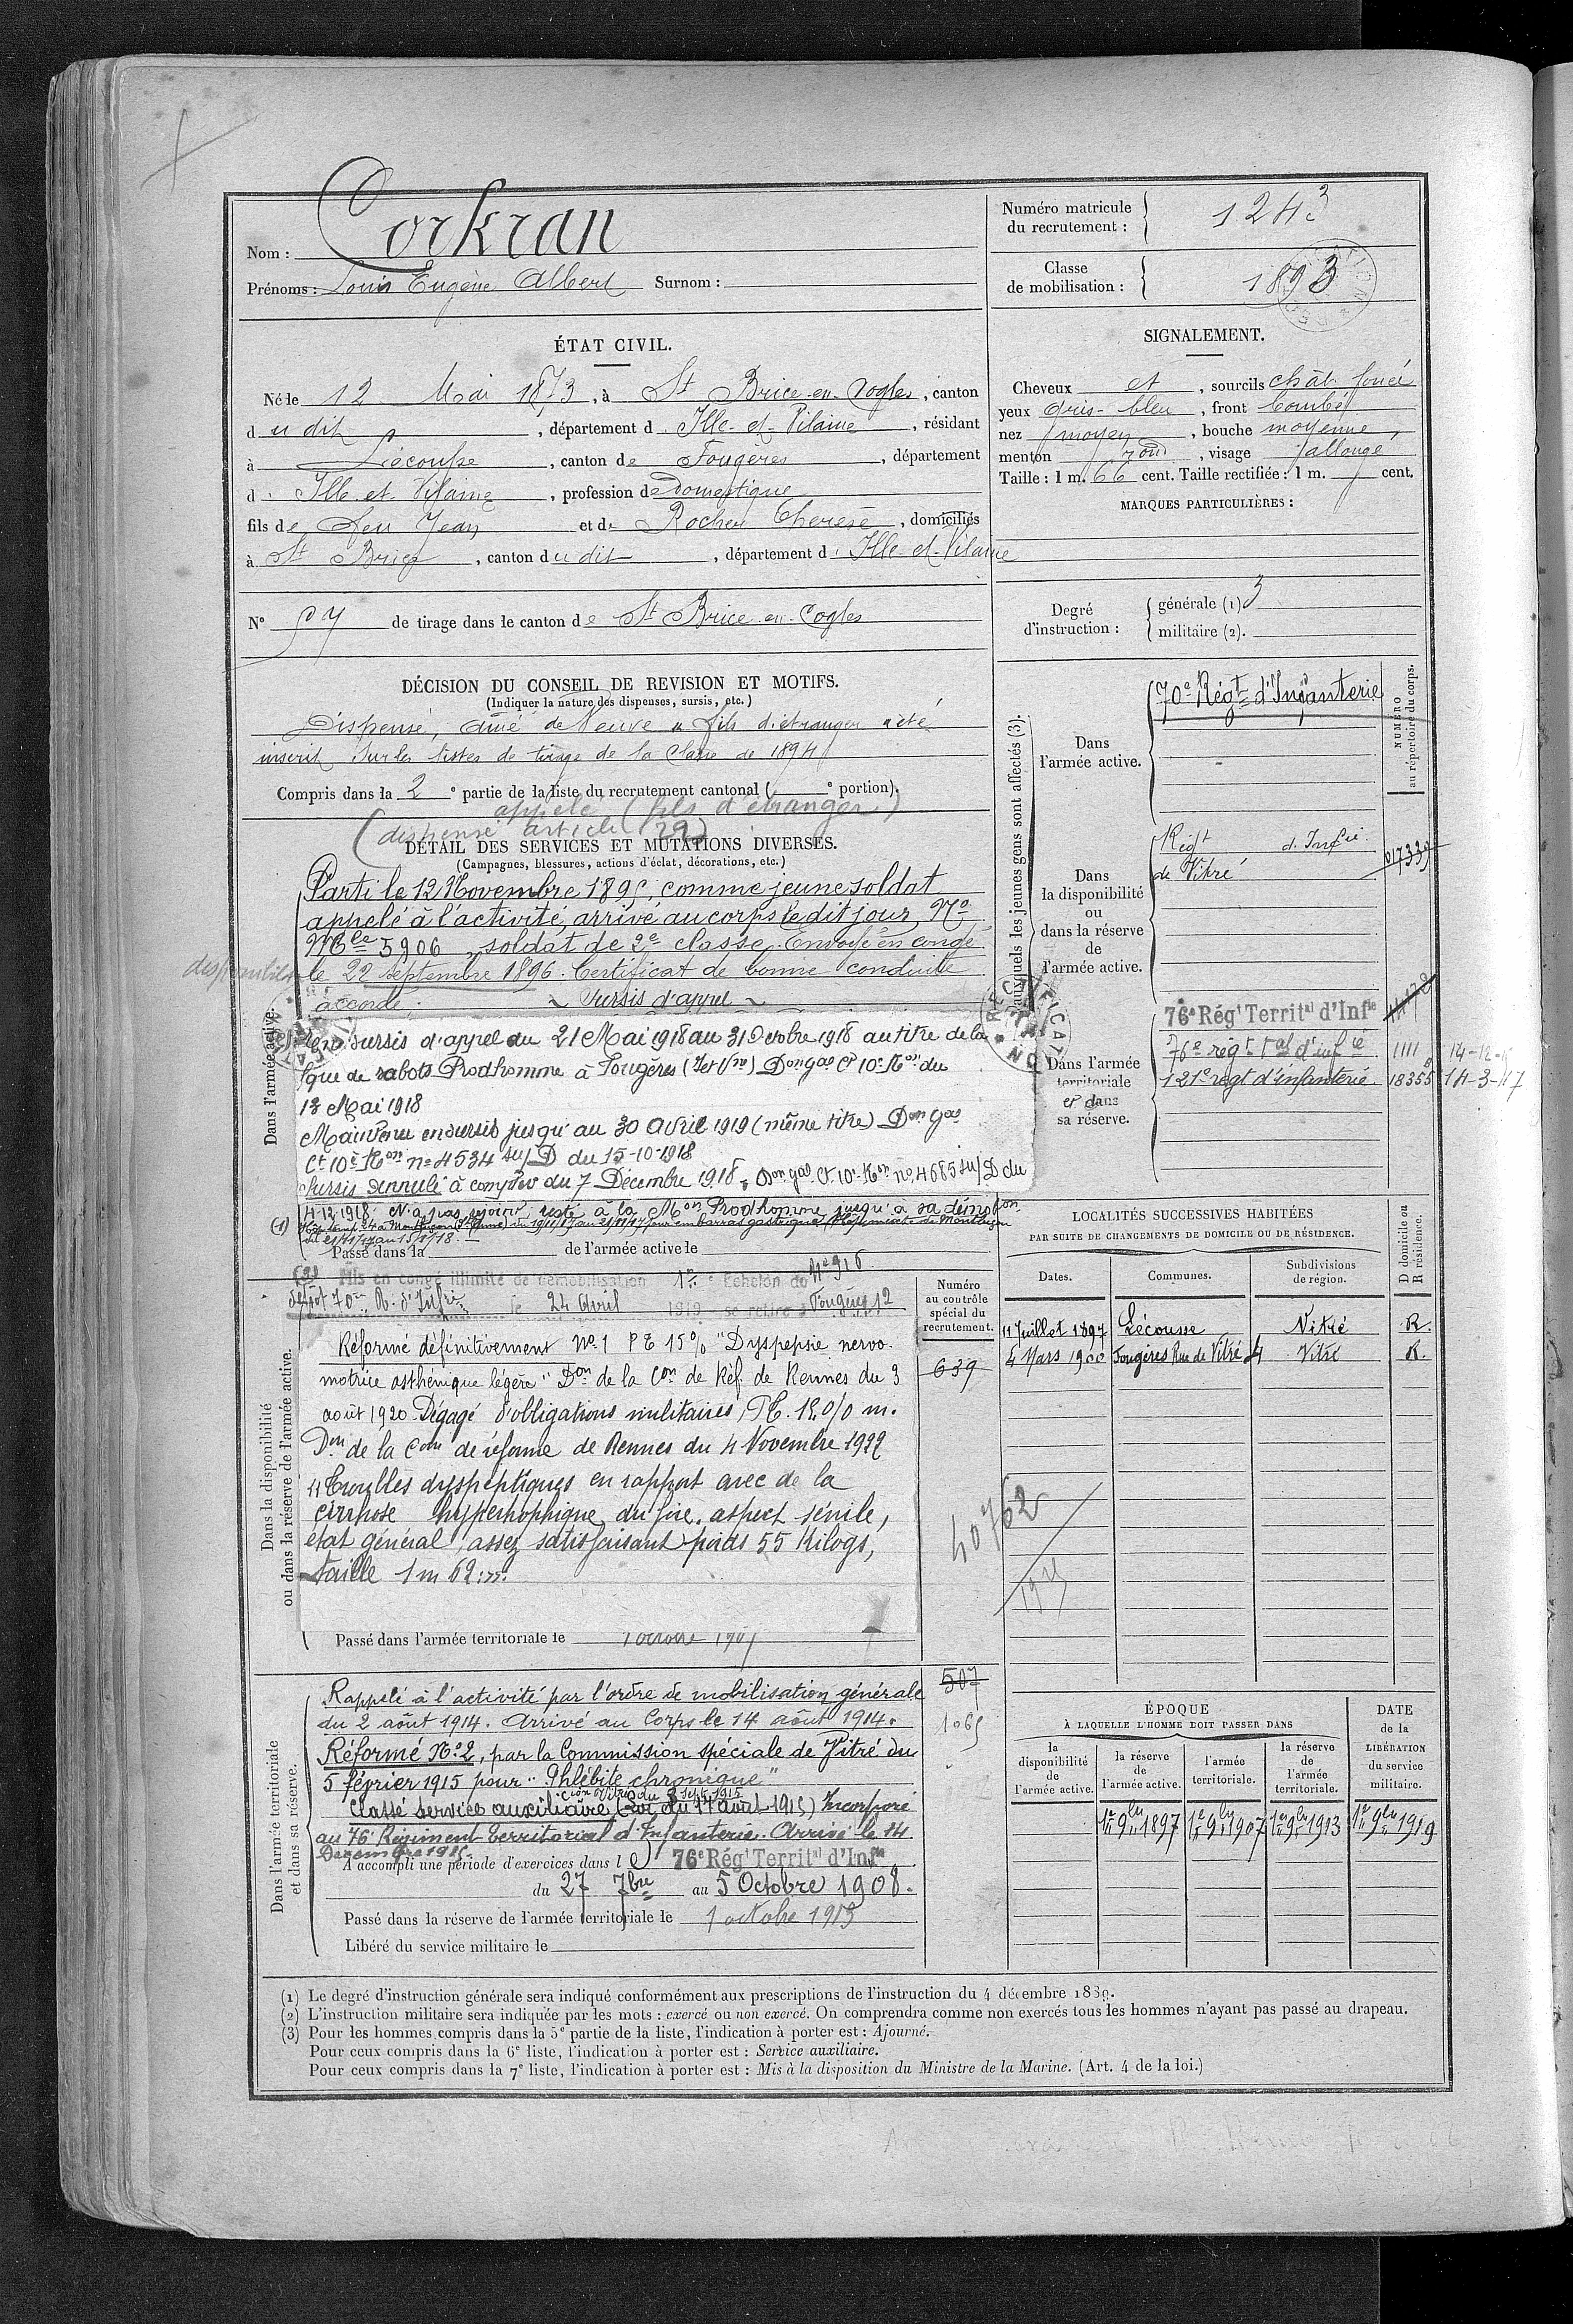 Nom : Corkran
Prénoms : Louis Eugène Albert Surnom :
Numéro matricule du recrutement : 1243
Classe de mobilisation : 1893
ÉTAT CIVIL.
Né le 12 Mai 1873, à St Brice-en-Cogles, canton
du dit, département d'Ille-et-Vilaine, résidant
à Lécousse, canton de Fougères, département
d'Ille-et-Vilaine, profession de Domestique
fils de feu Jean et de Rocher Therèse, domiciliés
à St Brice, canton du dit, département d'Ille-et-Vilaine
N° 57 de tirage dans le canton de St Brice-en-Cogles
SIGNALEMENT.
Cheveux et, sourcils chât. foncé
yeux gris-bleu, front bombé
nez moyen, bouche moyenne,
menton rond, visage allongé
Taille : 1 m. 66 cent. Taille rectifiée : 1 m. cent.
MARQUES PARTICULIÈRES :
Degré d'instruction : générale (1) 3
militaire (2).
DÉCISION DU CONSEIL DE REVISION ET MOTIFS.
(Indiquer la nature des dispenses, sursis, etc.)
Dispensé, aîné de Veuve " fils d'étranger a été
inscrit sur les listes de tirage de la Classe de 1894
Compris dans la 2e partie de la liste du recrutement cantonal ( e portion).
appelé (fils d'étranger)
(dispensé article 29)
DÉTAIL DES SERVICES ET MUTATIONS DIVERSES.
(Campagnes, blessures, actions d'éclat, décorations, etc.)
Dans l'armée active.
Parti le 12 Novembre 1895, comme jeune soldat
appelé à l'activité, arrivé au corps le dit jour, No
Mle 5906, soldat de 2e classe. Envoyé en congé
le 22 septembre 1896. Certificat de bonne conduite
accordé. ~ Sursis d'appel ~
sursis d'appel du 21 Mai 1918 au 31 Octobre 1918 au titre de la
que de sabots Prodhomme à Fougères (I et Vne) Don gal Ct 10e Ron du
18 Mai 1918
Maintenu en sursis jusqu'au 30 Avril 1919 (même titre) Don gal
Ct 10e Ron no 4534 su/D du 15-10-1918
Sursis Annulé à compter du 7 Décembre 1918, Don gal Ct 10e Ron no 4685 su/D du
4-12-1918. N'a pas rejoint, resté à la Mon Prodhomme jusqu'à sa démobon
(1)
Passé dans la de l'armée active le
(2) Mis en congé illimité de démobilisation 1er Echelon du No 916
dépôt 70e R. d'Infie le 24 Avril 1919 se retire à Fougères 12
Dans la disponibilité
ou dans la réserve de l'armée active.
Réformé définitivement No 1 P E 15% "Dyspepsie nervo-
motrice asthénique légère" Don de la Con de Réf. de Rennes du 3
août 1920. Dégagé d'obligations militaires, P.E. 15.0/0 m.
Don de la Com de réforme de Rennes du 4 Novembre 1922
"Troubles dyspeptiques en rapport avec de la
cirrhose hypertrophique du foie, aspect sénile,
état général assez satisfaisant poids 55 Kilogs,
taille 1 m 62."
Passé dans l'armée territoriale le 1 octobre 1907
Dans l'armée territoriale
et dans sa réserve.
Rappelé à l'activité par l'ordre de mobilisation générale
du 2 août 1914. Arrivé au Corps le 14 août 1914.
Réformé No 2, par la Commission spéciale de Vitré du
5 février 1915 pour "Phlébite chronique"
con Vitré du 8 Sept. 1915
Classé service auxiliaire (Loi du 17 août 1915) Incorporé
au 76e Régiment territorial d'Infanterie. Arrivé le 14
Décembre 1915.
A accompli une période d'exercices dans le 76e Régt Territal d'Infie
du 27 7bre au 5 Octobre 1908.
Passé dans la réserve de l'armée territoriale le 1 octobre 1913
Libéré du service militaire le
Numéro au contrôle spécial du recrutement.
639
40762
507
1065
Corps auxquels les jeunes gens sont affectés (3).
NUMÉRO au répertoire du corps.
Dans l'armée active.
70e Régt d'Infanterie
Dans la disponibilité ou dans la réserve de l'armée active.
Régt d'Infie de Vitré 17339
Dans l'armée territoriale et dans sa réserve.
76e Régt Territal d'Infie
76e régt tal d'infie 1111
121e régt d'infanterie 18355 14-3-17
LOCALITÉS SUCCESSIVES HABITÉES
PAR SUITE DE CHANGEMENTS DE DOMICILE OU DE RÉSIDENCE.
Dates. Communes. Subdivisions de région. D domicile ou R résidence.
11 Juillet 1897 Lécousse Vitré R.
4 Mars 1900 Fougères Rue de Vitré 4 Vitré R.
ÉPOQUE
À LAQUELLE L'HOMME DOIT PASSER DANS
la disponibilité de l'armée active. la réserve de l'armée active. l'armée territoriale. la réserve de l'armée territoriale.
DATE de la LIBÉRATION du service militaire.
1er 9bre 1897 1er 9bre 1907 1er 9bre 1913 1er 9bre 1919
(1) Le degré d'instruction générale sera indiqué conformément aux prescriptions de l'instruction du 4 décembre 1889.
(2) L'instruction militaire sera indiquée par les mots : exercé ou non exercé. On comprendra comme non exercés tous les hommes n'ayant pas passé au drapeau.
(3) Pour les hommes compris dans la 5e partie de la liste, l'indication à porter est : Ajourné.
Pour ceux compris dans la 6e liste, l'indication à porter est : Service auxiliaire.
Pour ceux compris dans la 7e liste, l'indication à porter est : Mis à la disposition du Ministre de la Marine. (Art. 4 de la loi.)